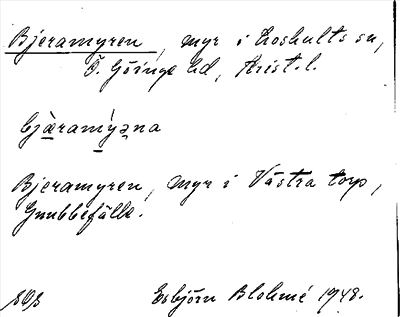 Bjeramyren, myr i Loshults sn,
Ö. Göinge hd, Krist. l.
bjæ̀ramýəna
Bjeramyren, myr i Västra torp,
Gnubbefälle.
Esbjörn Blohmé 1948.